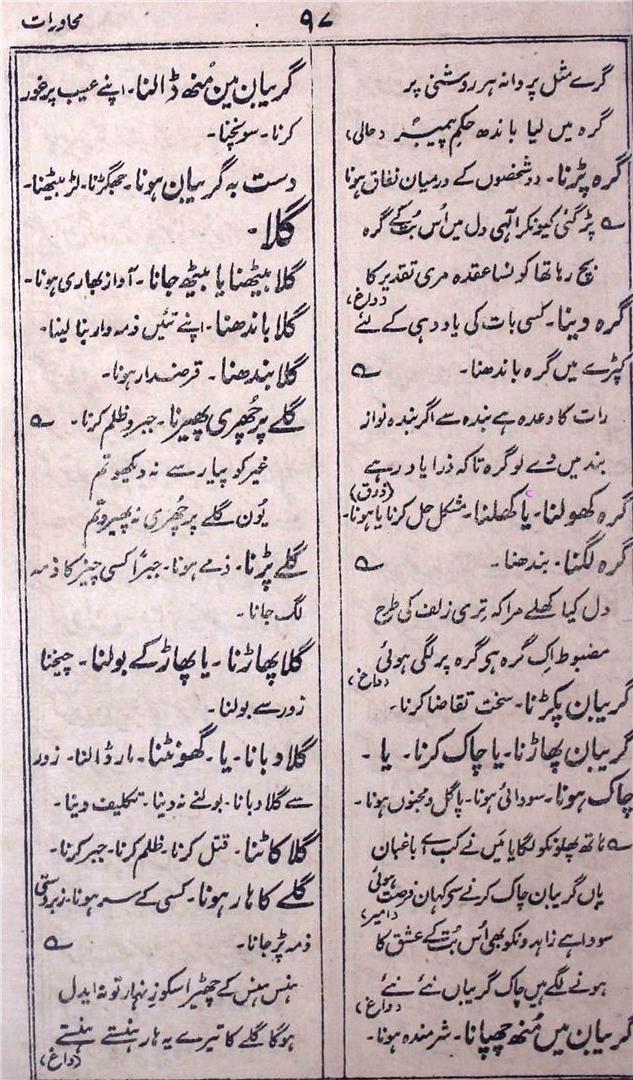 محاورات
۹۷
گرے مثل پروانہ ہر روشنی پر
گرہ میں لیا باندھ حکم پیمبر (حالی)
گرہ پڑنا۔ دو شخصوں کے درمیان نفاق ہونا
؎ پڑ گئی کیونکر الٰہی دل میں اُس بُت کے گرہ
بچ رہا تھا کونسا عقدہ مری تقدیر کا
(داغ)
گرہ دینا۔ کسی بات کی یاددہی کے لئے
کپڑے میں گرہ باندھنا۔ ؎
رات کا وعدہ ہے بندہ سے اگر بندہ نواز
بند میں دے لو گرہ تاکہ ذرا یاد رہے
(ذوق)
گرہ کھولنا۔ یا کھلنا۔ مشکل حل کرنا یا ہونا۔
گرہ لگنا۔ بندھنا۔ ؎
دل کیا کھلے مرا کہ تِری زلف کی طرح
مضبوط اِک گرہ ہی گرہ پر لگی ہوئی
(داغ)
گریبان پکڑنا۔ سخت تقاضا کرنا۔
گریبان پھاڑنا۔ یا چاک کرنا۔ یا۔
چاک ہونا۔ سودائی ہونا۔ پاگل و مجنوں ہونا۔
؎ ہاتھ پھلونکو لگایا مَیں نے کب اے باغبان
یاں گریبان چاک کرنے سی کہان فرصت ہوئی
(امیر)
سودا ہے زاہدونکو بھی اُس بُت کے عشق کا
ہونے لگے ہیں چاک گریباں نئے نئے
(داغ)
گریبان میں مُنھ چھپانا۔ شرمندہ ہونا۔
گریبان مین مُنھ ڈالنا۔ اپنے عیب پر غور
کرنا۔ سونچنا۔
دست بہ گریبان ہونا۔ جھگڑنا۔ لڑ بیٹھنا۔
گلا۔
گلا بیٹھنا یا بیٹھ جانا۔ آواز بھاری ہونا۔
گلا باندھنا۔ اپنے تئیں ذمہ وار بنا لینا۔
گلا بندھنا۔ قرضدار ہونا۔
گلے پر چُھری پھیرنا۔ جبر و ظلم کرنا۔ ؎
غیر کو پیار سے نہ دیکھو تم
یُوں گلے پر چُھری نہ پھیرو تم
گلے پڑنا۔ ذمے ہونا۔ جبراً کسی چیز کا ذمہ
لگ جانا۔
گلا پھاڑنا۔ یا پھاڑ کے بولنا۔ چیخنا
زور سے بولنا۔
گلا دبانا۔ یا۔ گھونٹنا۔ مار ڈالنا۔ زور
سے گلا دبانا۔ بولنے نہ دینا۔ تکلیف دینا۔
گلا کاٹنا۔ قتل کرنا۔ ظلم کرنا۔ جبر کرنا۔
گلے کا ہار ہونا۔ کسی کے سر ہونا۔ زبردستی
ذمہ پڑ جانا۔ ؎
ہنس ہنس کے چھیڑ اسکو زنہار تو نہ ایدل
ہوگا گلے کا تیرے یہ ہار ہنستے ہنستے
(داغ)